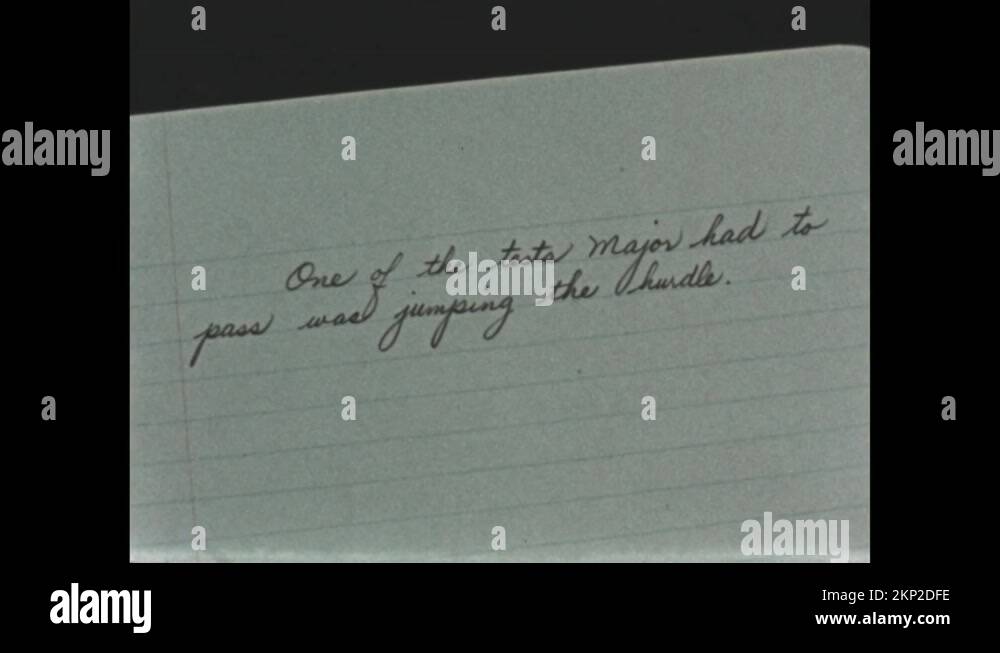 a a a
alamy a a alamy
One of the tests Major had to
pass was jumping the hurdle.
a a a
a a a a
a a alamy
alamy
Image ID: 2KP2DFE
www.alamy.com